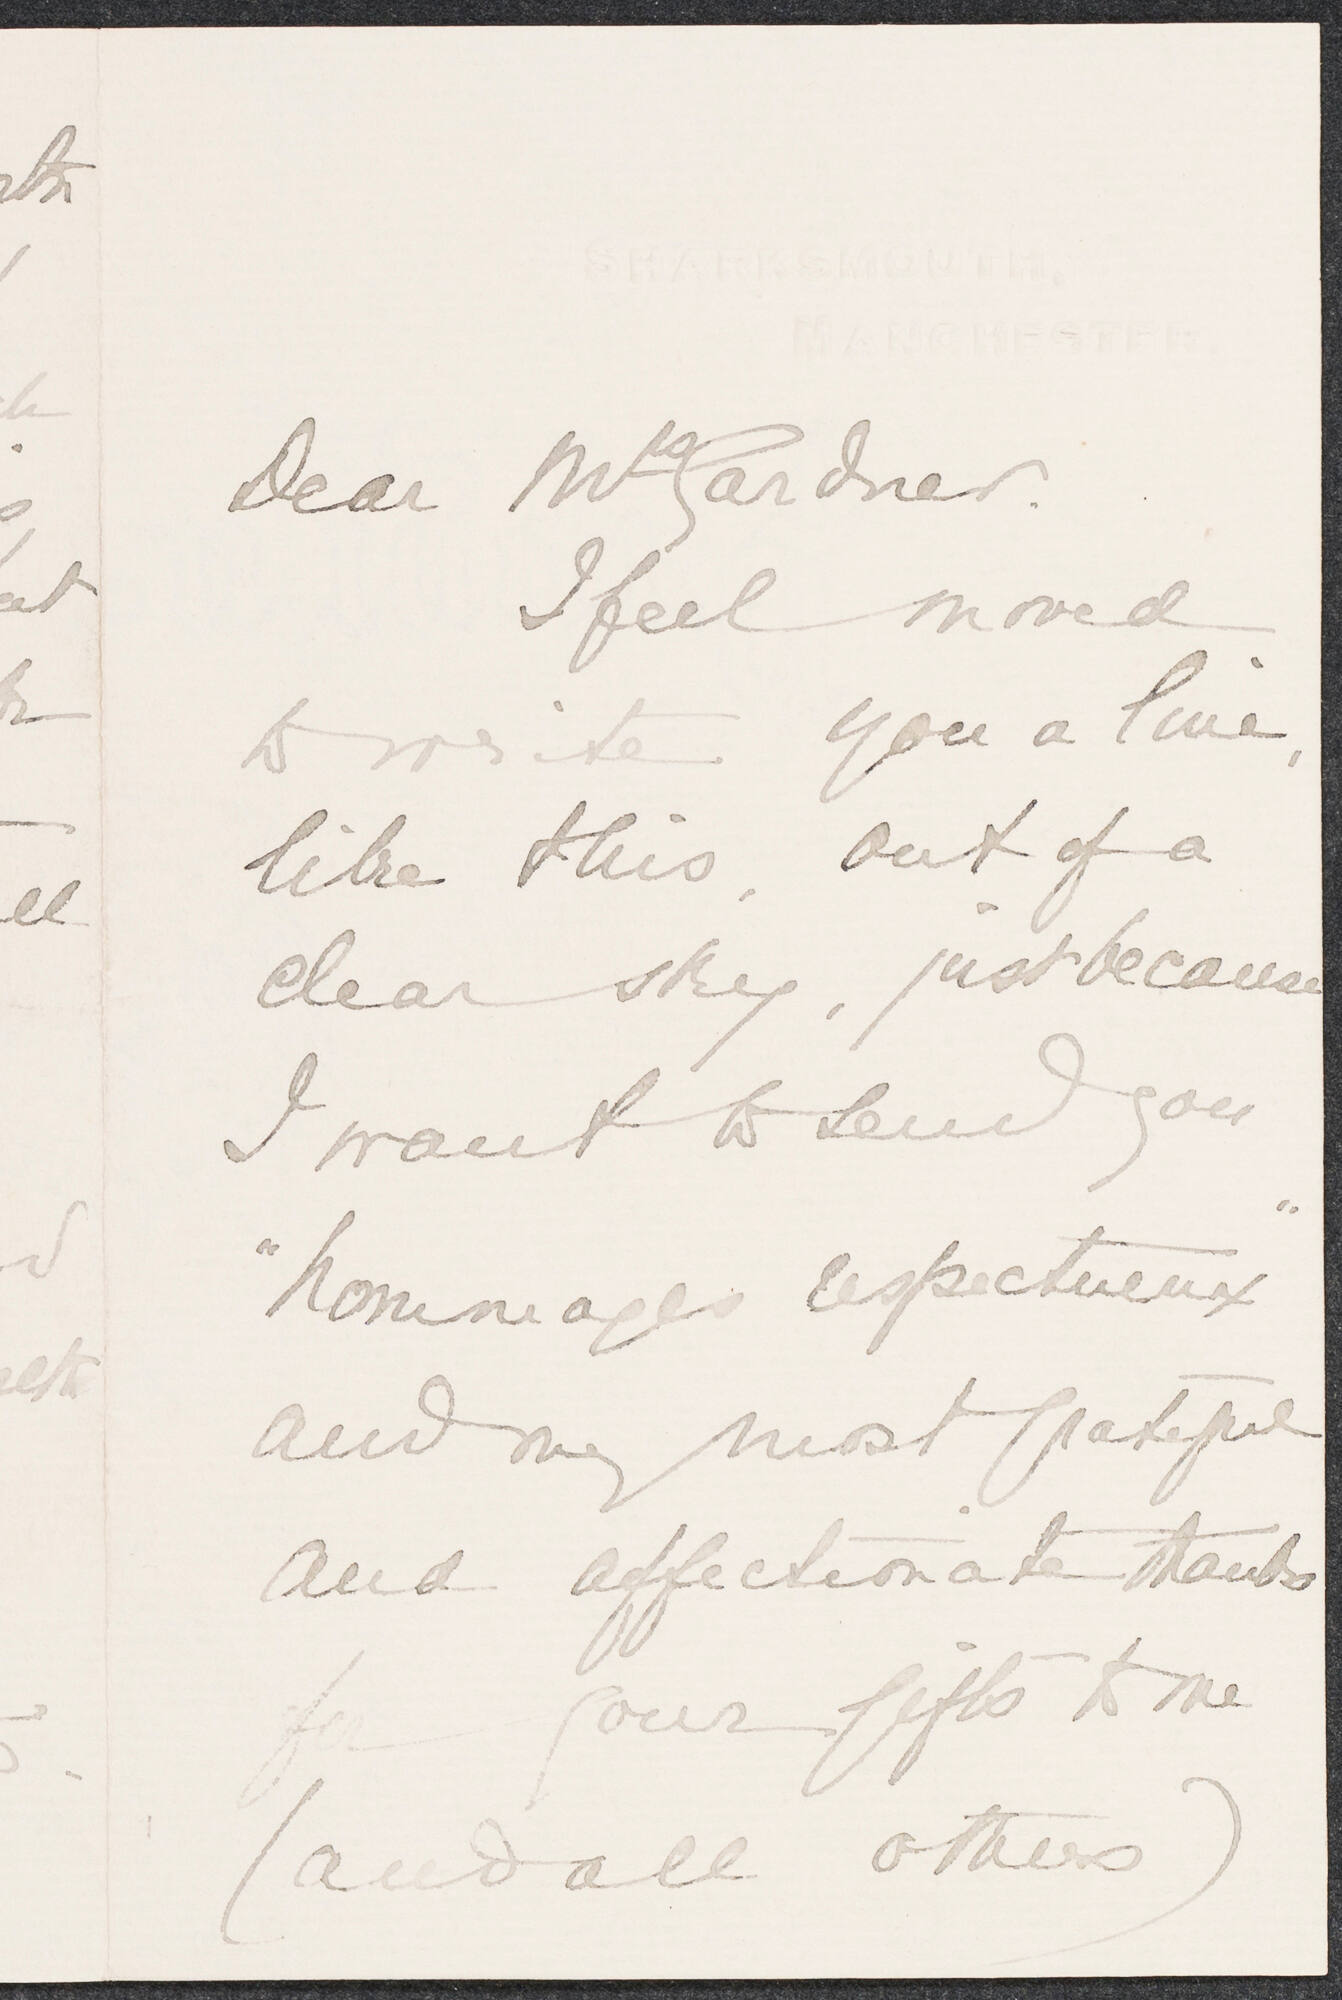 SHARKSMOUTH,
MANCHESTER.
Dear Mrs Gardner.
I feel moved
to write you a line,
like this, out of a
clear sky, just because
I want to send you
"hommages respectueux"
and my most grateful
and affectionate thanks
for your gifts to me
(and all others)